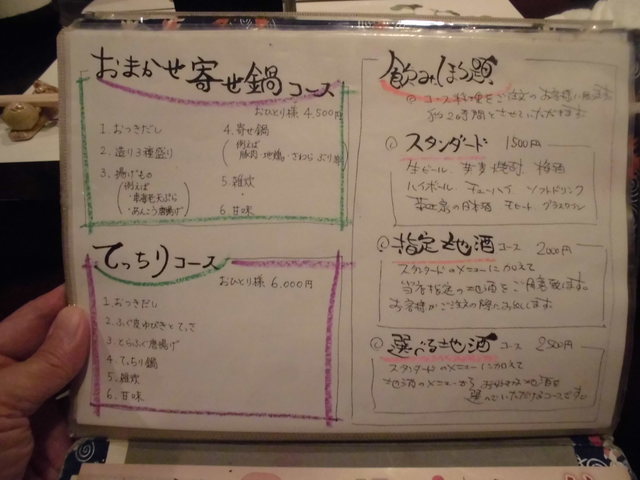 おまかせ寄せ鍋コース
おひとり様 4,500円
1. おつきだし
2. 造り3種盛り
3. 揚げもの
(例えば
天ぷら
・あんこう唐揚げ)
4. 寄せ鍋
(例えば
豚肉・地鶏・さわら ぶり等)
5. 雑炊
6. 甘味
てっちりコース
おひとり様 6,000円
1. おつきだし
2. ふぐ皮ゆびきとてっさ
3. とらふぐ唐揚げ
4. てっちり鍋
5. 雑炊
6. 甘味
飲みほう題
コース料理をご注文のお客様に限
約2時間とさせていただきます
スタンダード 1500円
生ビール、芋麦焼酎、梅酒
ハイボール、チューハイ、ソフトドリンク
の日本酒 グラスワイン
指定地酒コース 2000円
スタンダードのメニューに加えて
当店指定の地酒をご用意致します。
お客様がご注文の際にお出しします。
選べる地酒コース 2500円
スタンダードのメニューに加えて
地酒のメニューから お好きな地酒を
選んでいただけるコースです。